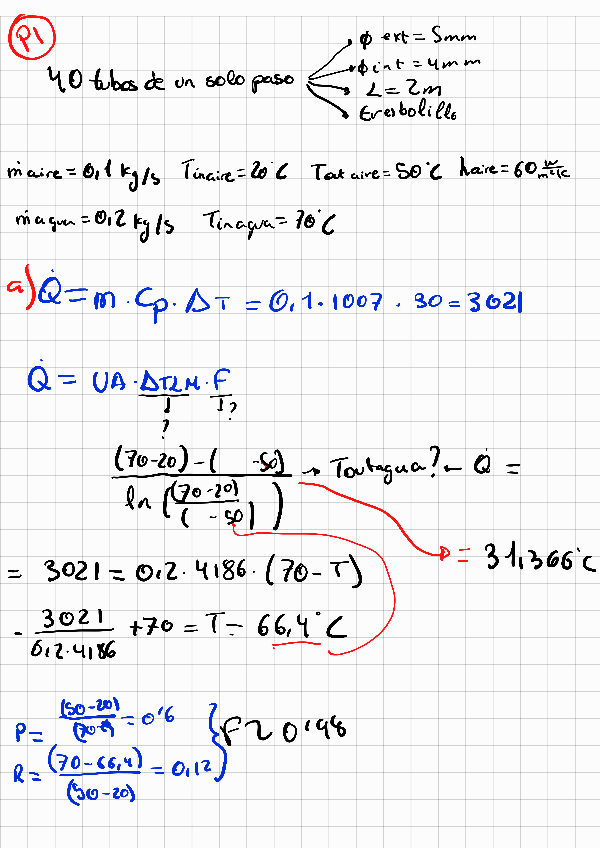 P1
φ ext = 5mm
40 tubos de un solo paso
φ int = 4mm
L = 2m
tresbolillo
ṁ aire = 0,1 kg/s Tinaire = 20°C Tout aire = 50°C haire = 60 W/m²K
ṁ agua = 0,2 kg/s Tinagua = 70°C
a) Q̇ = m · Cp · ΔT = 0,1 · 1007 · 30 = 3021
Q̇ = UA · ΔTLM · F
? ?
(70-20) - ( -50) → Toutagua? ← Q̇ =
ln ( (70-20) / ( - 50) ) = 31,366°C
= 3021 = 0,2 · 4186 · (70 - T)
- 3021 / 0,2 · 4186 + 70 = T = 66,4°C
P = (50-20) / = 0'6
R = (70-66,4) / (50-20) = 0,12
F ~ 0'98